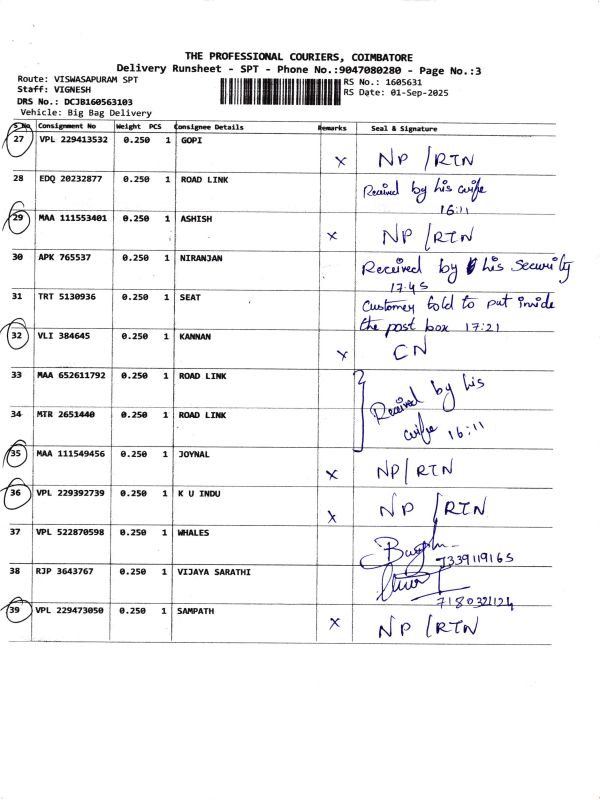 THE PROFESSIONAL COURIERS, COIMBATORE
Delivery Runsheet - SPT - Phone No.:9047080280 - Page No.:3
Route: VISWASAPURAM SPT
RS No.: 1605631
Staff: VIGNESH
RS Date: 01-Sep-2025
DRS No.: DCJB160563103
Vehicle: Big Bag Delivery
S No Consignment No Weight PCS Consignee Details Remarks Seal & Signature
27 VPL 229413532 0.250 1 GOPI x NP /RTN
28 EDQ 20232877 0.250 1 ROAD LINK Received by his wife 16:11
29 MAA 111553401 0.250 1 ASHISH x NP /RTN
30 APK 765537 0.250 1 NIRANJAN Received by his security 17:45
31 TRT 5130936 0.250 1 SEAT Customer told to put inside the post box 17:21
32 VLI 384645 0.250 1 KANNAN x CN
33 MAA 652611792 0.250 1 ROAD LINK Received by his
34 MTR 2651440 0.250 1 ROAD LINK wife 16:11
35 MAA 111549456 0.250 1 JOYNAL x NP/RTN
36 VPL 229392739 0.250 1 K U INDU x NP /RTN
37 VPL 522870598 0.250 1 WHALES 7339119165
38 RJP 3643767 0.250 1 VIJAYA SARATHI 7180321124
39 VPL 229473050 0.250 1 SAMPATH x NP /RTN